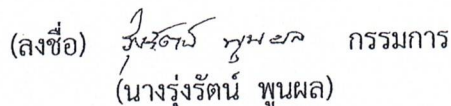 (ลงชื่อ) รุ่งรัตน์ พูนผล กรรมการ
(นางรุ่งรัตน์ พูนผล)